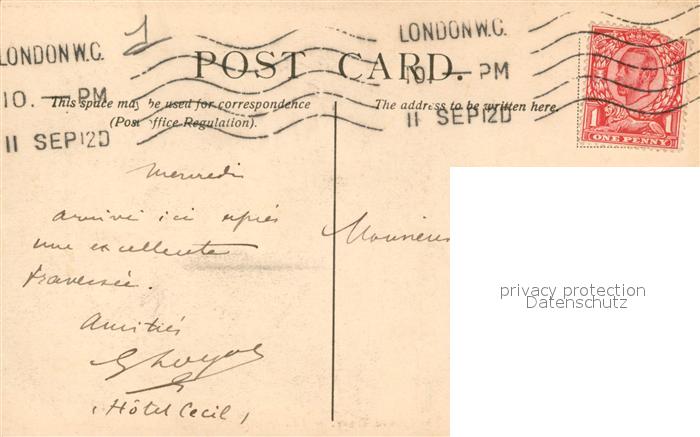 LONDON W.C.
10. — PM
11 SEP 12D
LONDON W.C.
10. — PM
11 SEP 12D
POST CARD.
This space may be used for correspondence
(Post Office Regulation).
The address to be written here.
1 1
ONE PENNY
Mercredi
arrivé ici après
une excellente
traversée.
Amitiés
(Hôtel Cecil)
Monsieur
privacy protection
Datenschutz